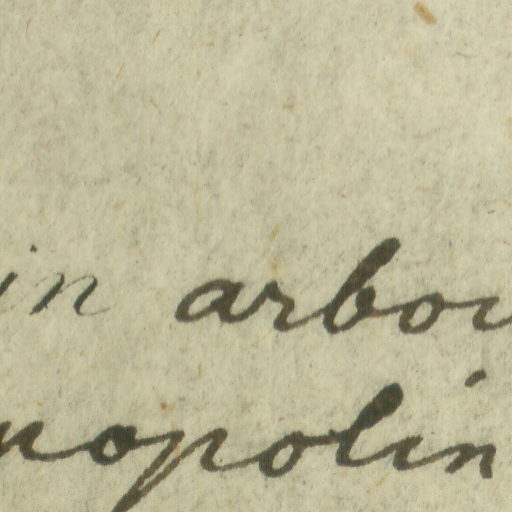 in arbou
nopolin